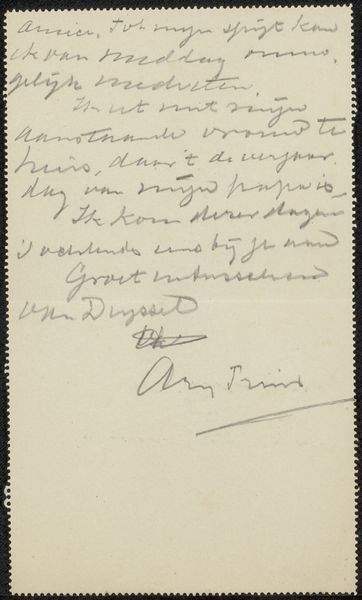 Amice, Tot mijn spijt kan
ik van middag onmo-
gelijk
Ik eet met mijn
aanstaande vrouw te
huis, daar 't de verjaar
dag van mijn papa is.
Ik kom dezer dagen
's ochtends eens bij je aan
Groet intusschen
van Deyssel
Ary Prins